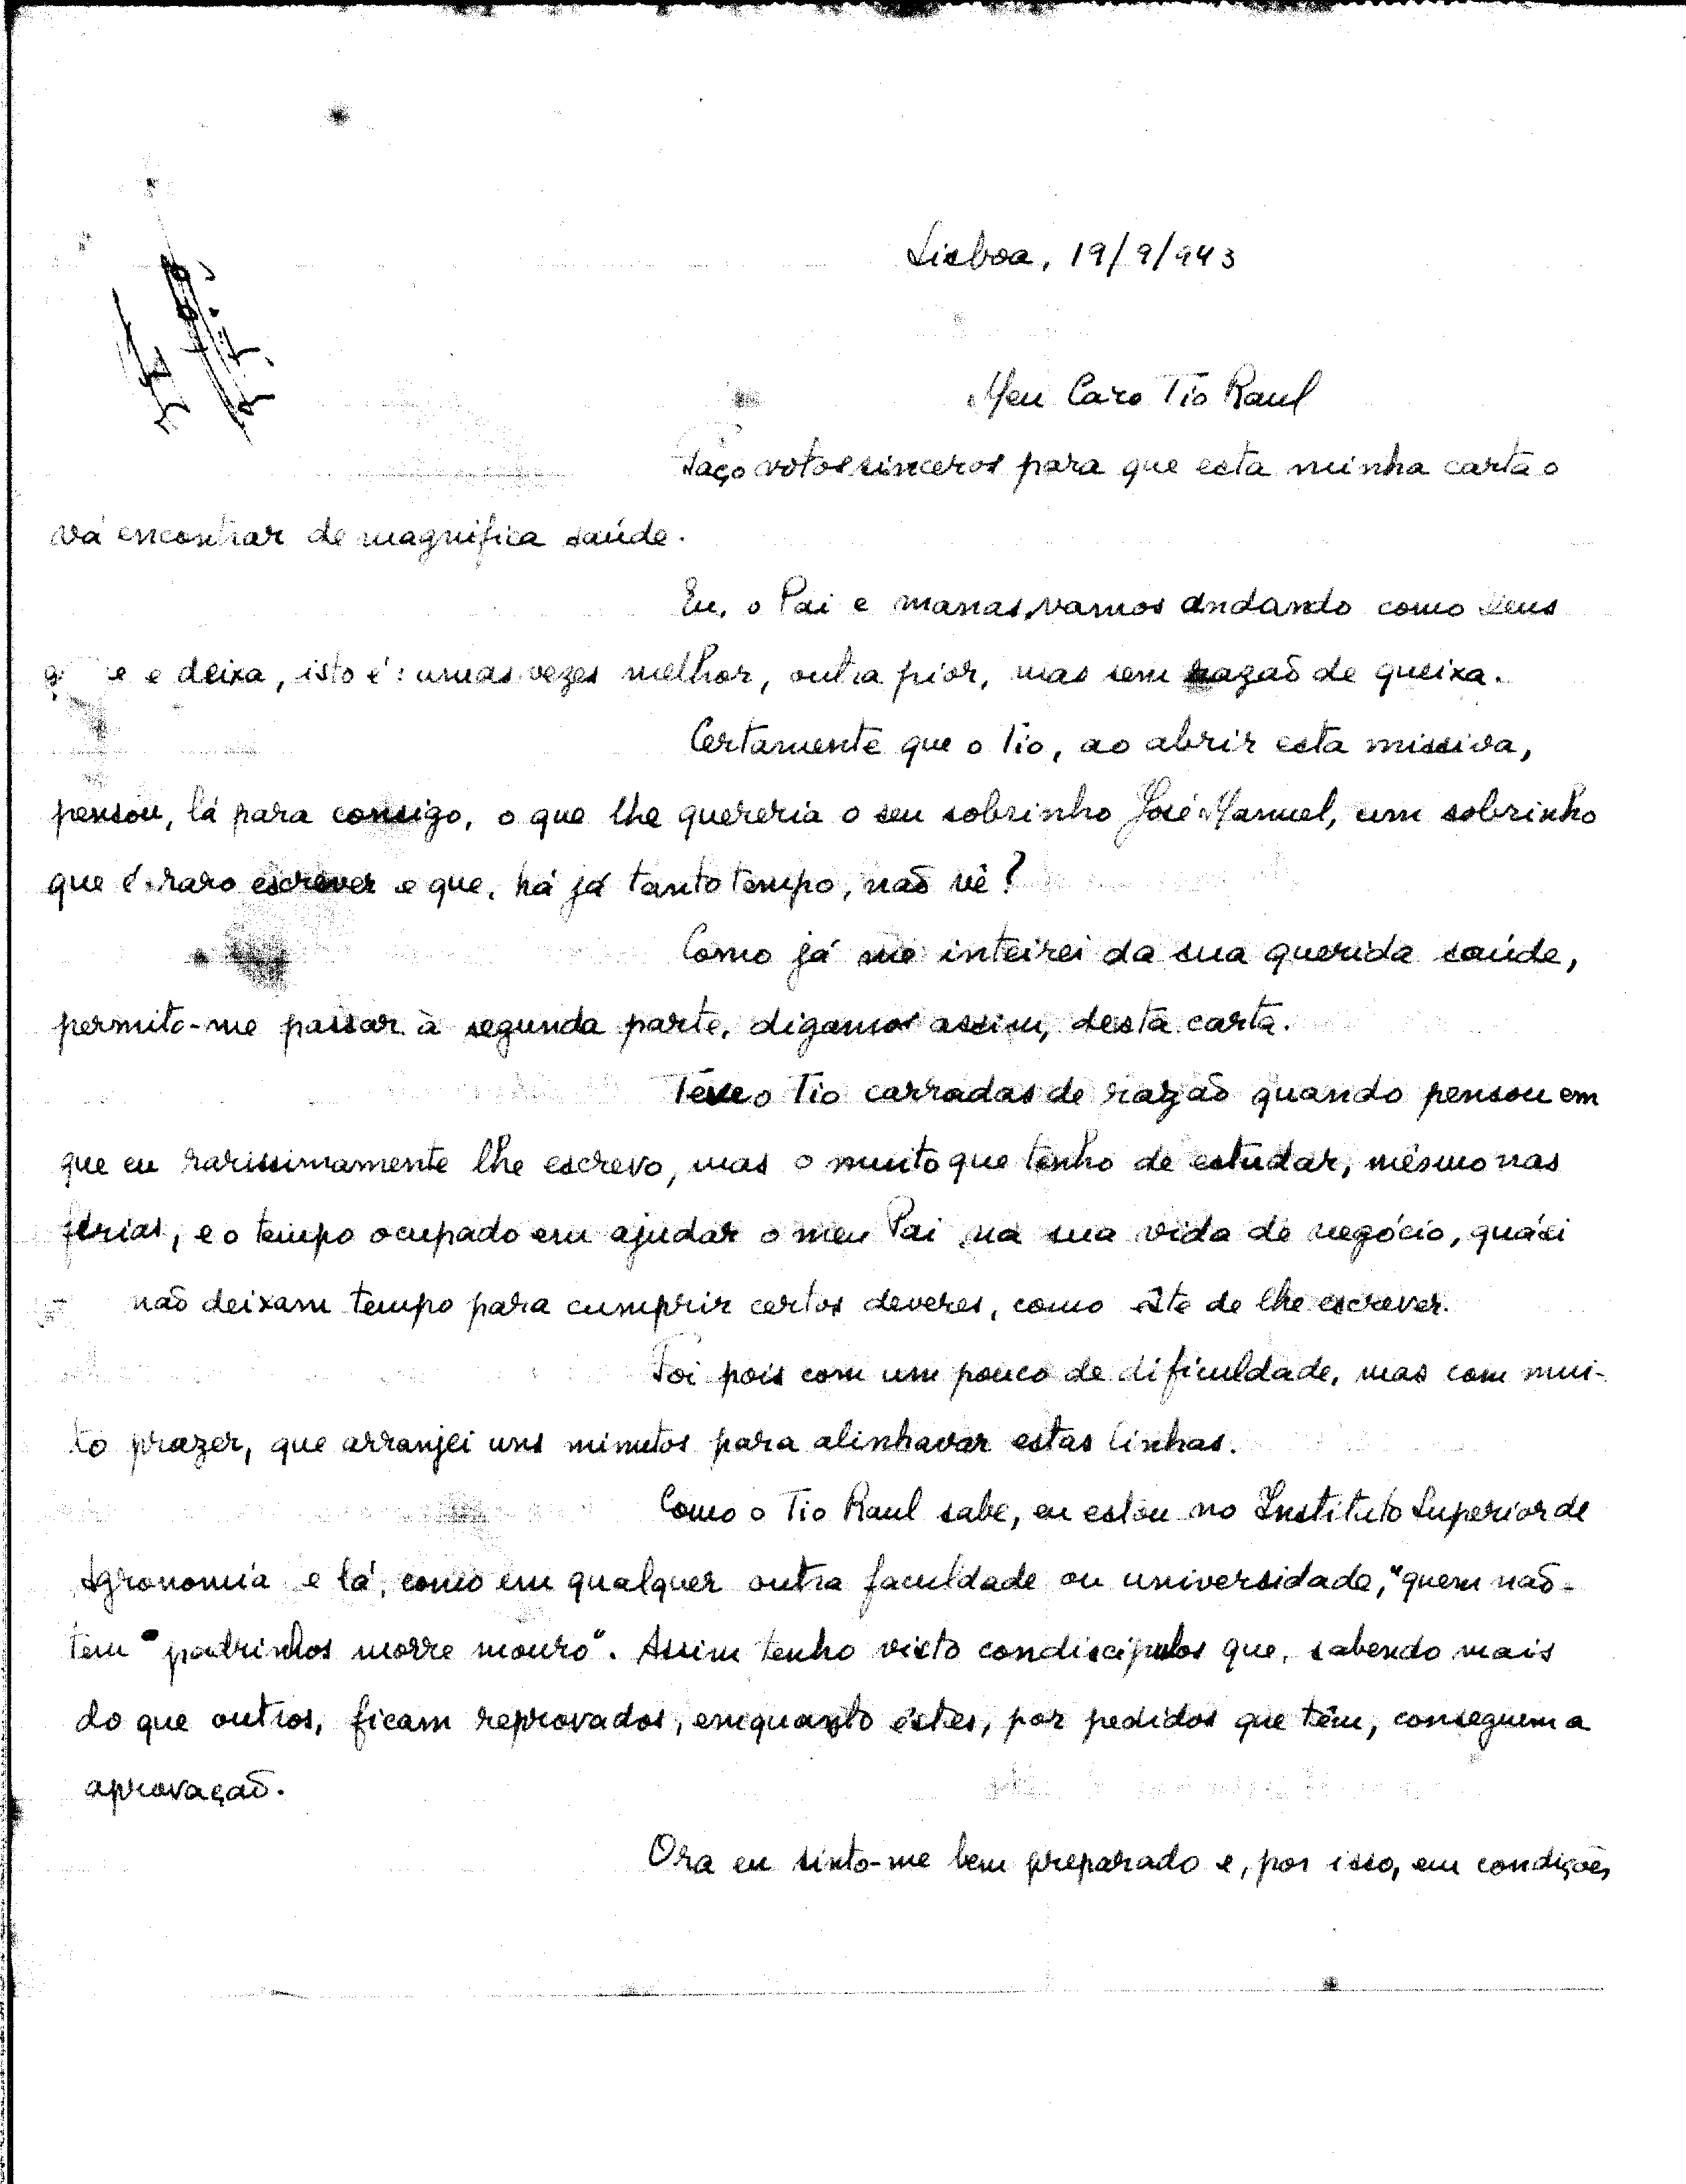 Lisboa, 19/9/943
Meu Caro Tio Raul
Faço votos sinceros para que esta minha carta o
vá encontrar de magnifica saúde.
Eu, o Pai e manas, vamos andando como Deus
e deixa, isto é: umas vezes melhor, outra pior, mas sem razaõ de queixa.
Certamente que o Tio, ao abrir esta missiva,
pensou, lá para consigo, o que lhe quereria o seu sobrinho José Manuel, um sobrinho
que é raro escrever e que, há já tanto tempo, naõ vê?
Como já me inteirei da sua querida saúde,
permito-me passar à segunda parte, digamos assim, desta carta.
Têve o Tio carradas de razaõ quando pensou em
que eu rarissimamente lhe escrevo, mas o muito que tenho de estudar, mêsmo nas
férias, e o tempo ocupado em ajudar o meu Pai na sua vida de negócio, quási
naõ deixam tempo para cumprir certos deveres, como êste de lhe escrever.
Foi pois com um pouco de dificuldade, mas com mui-
to prazer, que arranjei uns minutos para alinhavar estas linhas.
Como o Tio Raul sabe, eu estou no Instituto Superior de
Agronomia e lá, como em qualquer outra faculdade ou universidade, "quem naõ
tem padrinhos morre mouro". Assim tenho visto condiscípulos que, sabendo mais
do que outros, ficam reprovados, emquanto êstes, por pedidos que têm, conseguem a
aprovaçaõ.
Ora eu sinto-me bem preparado e, por isso, em condições